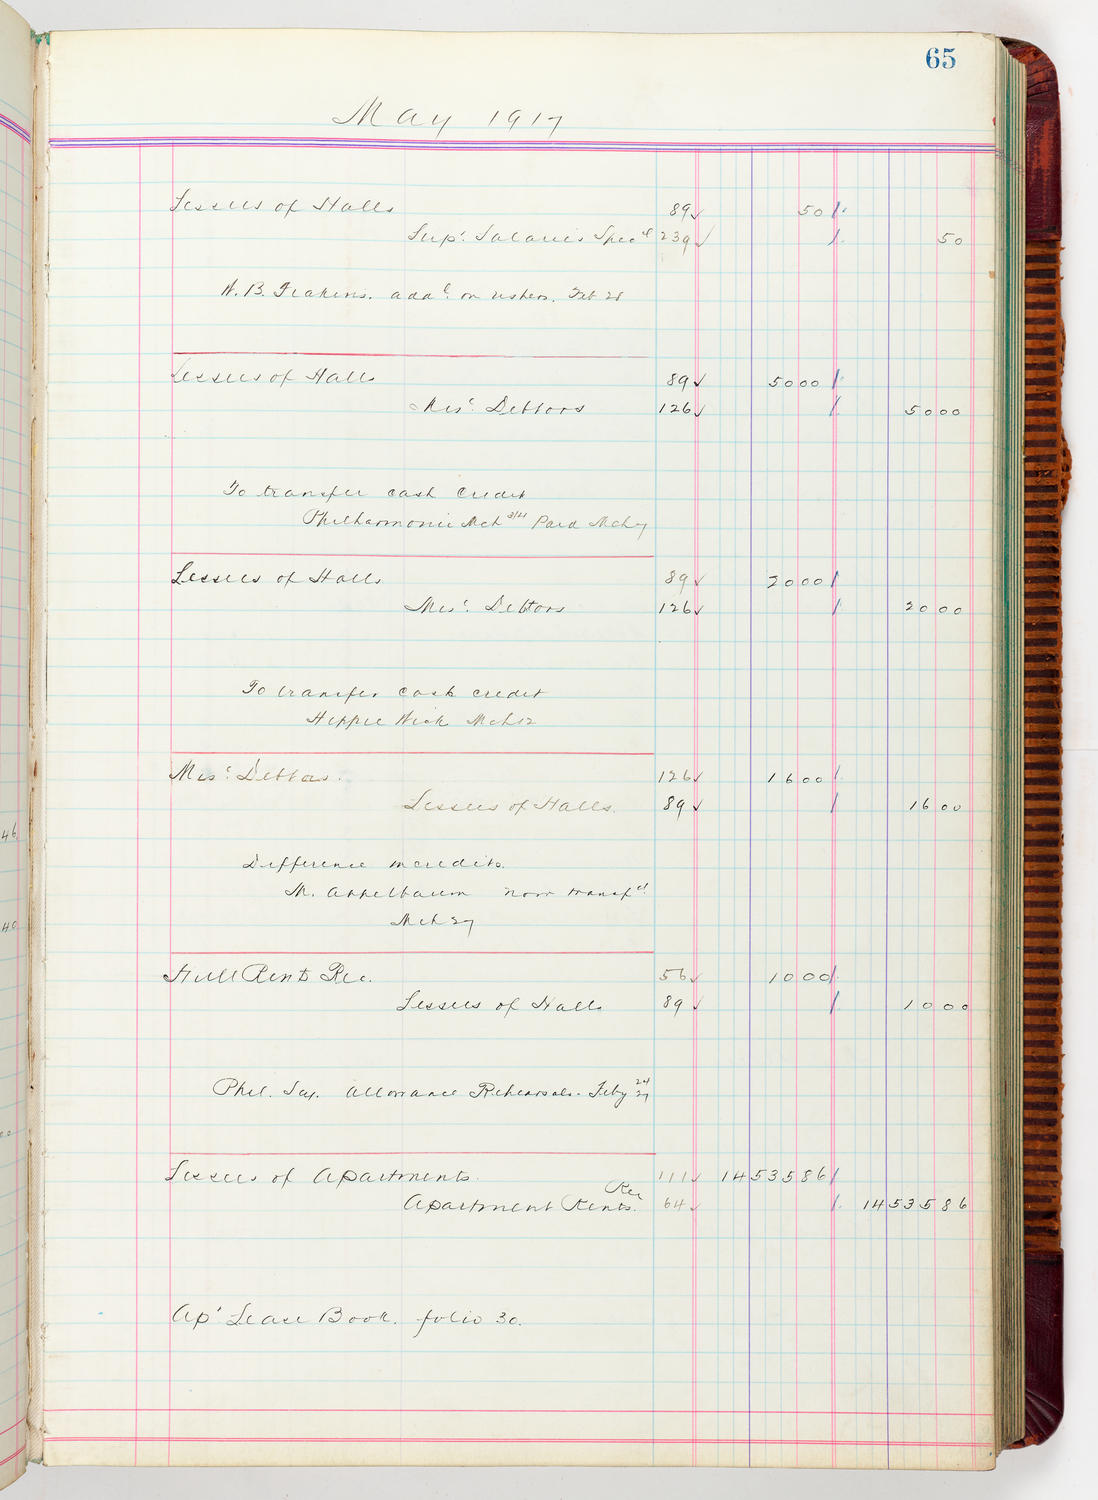 65
May 1917
Lessees of Halls 89 ✓ 50
Supt. Salaries Specl 239 ✓ 50
addl. on ushers. Feb 28
Lessees of Halls 89 ✓ 5000
Misc. Debtors 126 ✓ 5000
To transfer cash credit
Philharmonic Mch 3/4 Paid Mch 7
Lessees of Halls 89 ✓ 2000
Misc. Debtors 126 ✓ 2000
To transfer cash credit
Mch 12
Misc. Debtors. 126 ✓ 1600
Lessees of Halls. 89 ✓ 1600
Difference in credits.
M. Appelbaum now transfd
Mch 27
Hall Rents Rec. 56 ✓ 1000
Lessees of Halls 89 ✓ 1000
Phil. Soy. allowance Rehearsals. Feby 24 27
Lessees of Apartments. 111 ✓ 1453586
Apartment Rents. Rec 64 ✓ 1453586
Apt Lease Book. folio 30.
46
40
00